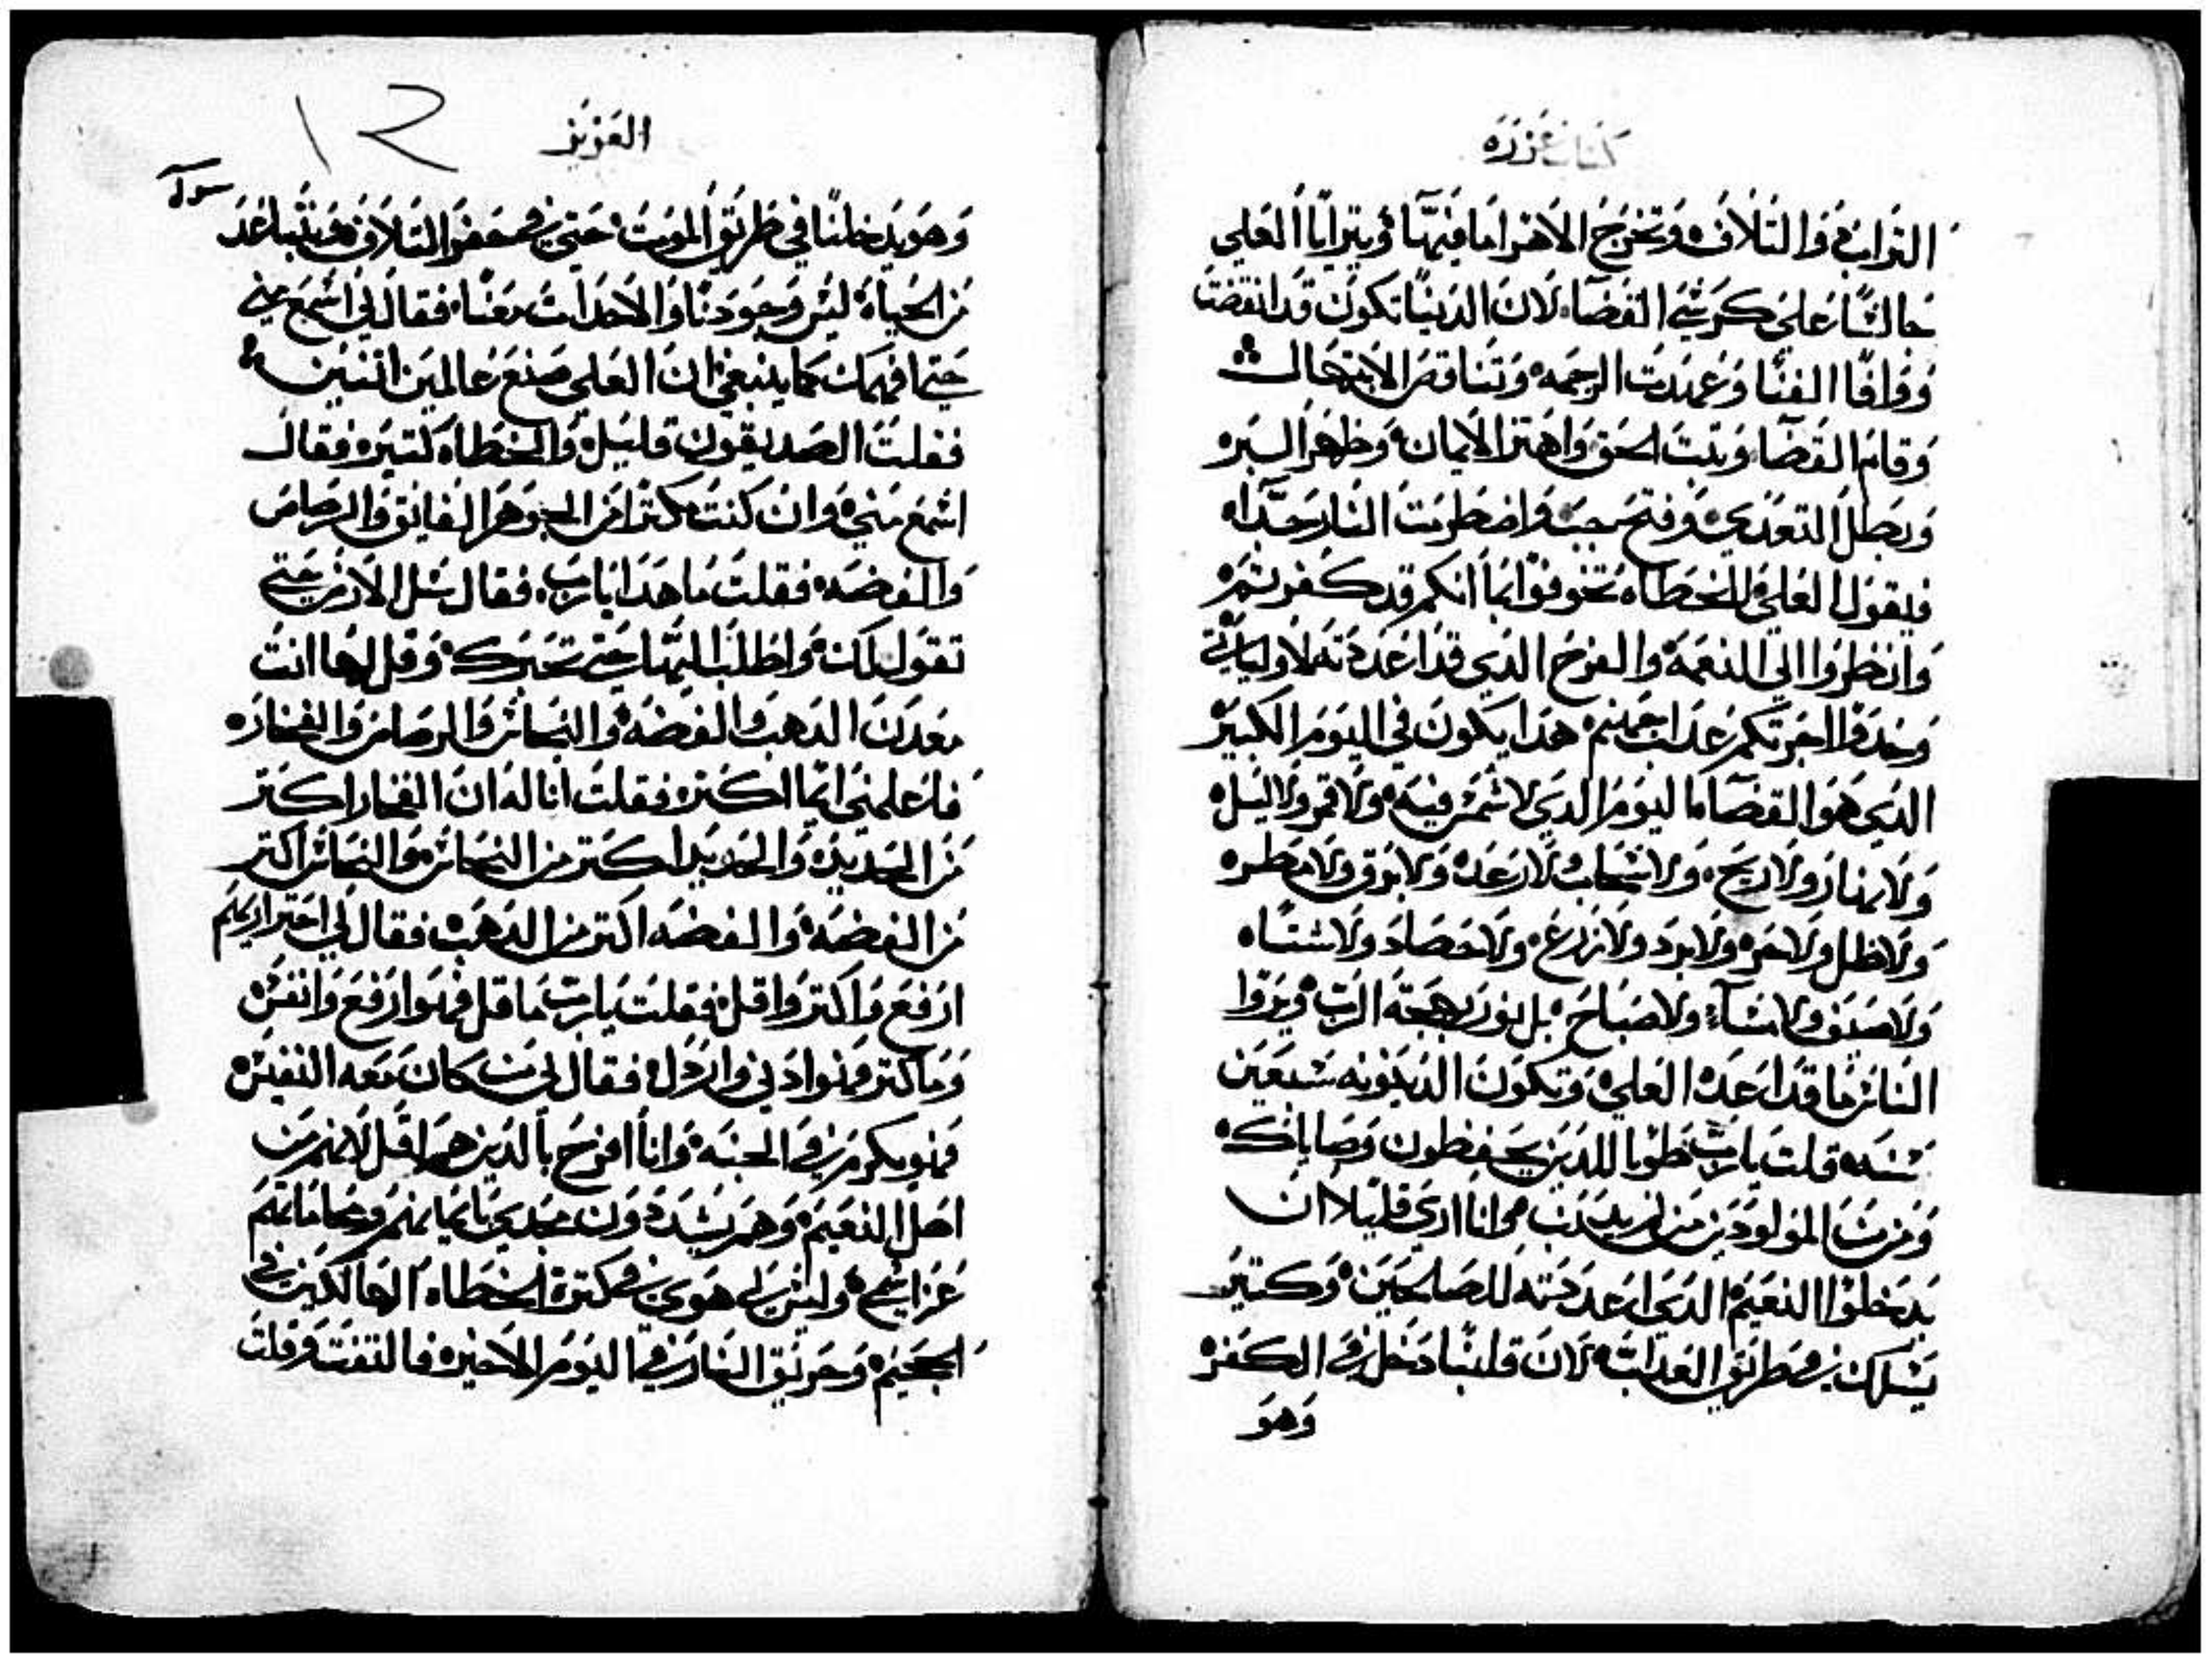 كتاب عزره
التراب والتلاف وتخرج الاهرا ما فيها ويترايا العلي
جالسا علي كرسي القضا لان الدنيا تكون قد انقضت
ووافا الفنا وعمدت الرحمه وتناقص الابتهال
وقام القضا وتبت الحق واهتز الايمان وظهر السيره
وبطل التعدي وفتح جب واضطرمت النار جدا
فيقول العلي للخطاه تخوفوا بما انكم قد كفرتم
وانظروا الي النعمه والفرح الدي قد اعددته لاوليائي
وخدوا اجرتكم عداب جهنم هدا يكون في اليوم الكبير
الدي هو القضا ما ليوم الدي لا شمس فيه ولا قمر ولا ليل
ولا نهار ولا ريح ولا سحاب ولا رعد ولا برق ولا مطر
ولا ظل ولا حر ولا برد ولا زرع ولا حصاد ولا شتاء
ولا صيف ولا مساء ولا صباح بل نور بهجة الرب ويروا
الناس ما قد اعده العلي وتكون الدينونه سبعين
سنه قلت يارب طوبا للدين يحفظون وصاياك
ومن من المولودين من لم يدنب وانا اري قليلا ان
يدخلوا النعيم الدي اعددته للصالحين وكتير
يسلك في طريق العداب لان قلبنا دخل في الكفر
وهو
العزيز
١٢
وهو يدخلنا في طريق الموت حتي في حفر التلاف ويتباعد
من الحياه ليس وجودنا والاحدات معنا فقال لي اسمع مني
حتي افهمك كما ينبغي ان العلي صنع عالمين اتنين
فقلت الصديقون قليل والخطاه كتير فقال
اسمع مني وان كنت مكترا من الجوهر الفايق والرصاص
والفضه فقلت ما هدا يارب فقال سل الارض حتي
تقول لك واطلب اليها حتي تخبرك وقل لها انت
معدن الدهب والفضه والنحاس والرصاص والفخار
فاعلمني ايما اكتر فقلت انا له ان الفخار اكتر
من الحديد والحديد اكتر من النحاس والنحاس اكتر
من الفضه والفضه اكتر من الدهب فقال لي اختر ايهم
ارفع واكتر واقل فقلت يارب ما قل فهو ارفع وانفس
وما كتر فهو ادني وارذل فقال لي من كان معه النفيس
فهو مكرم في الجنه وانا افرح بالدين هم اقل لانهم من
اهل النعيم وهم يشددون مجدي بايمانهم ومحاماتهم
عن اسمي وليس لي هوي في كترة الخطاه الهالكين في
الجحيم وحريق النار في اليوم الاخير فالتفت وقلت